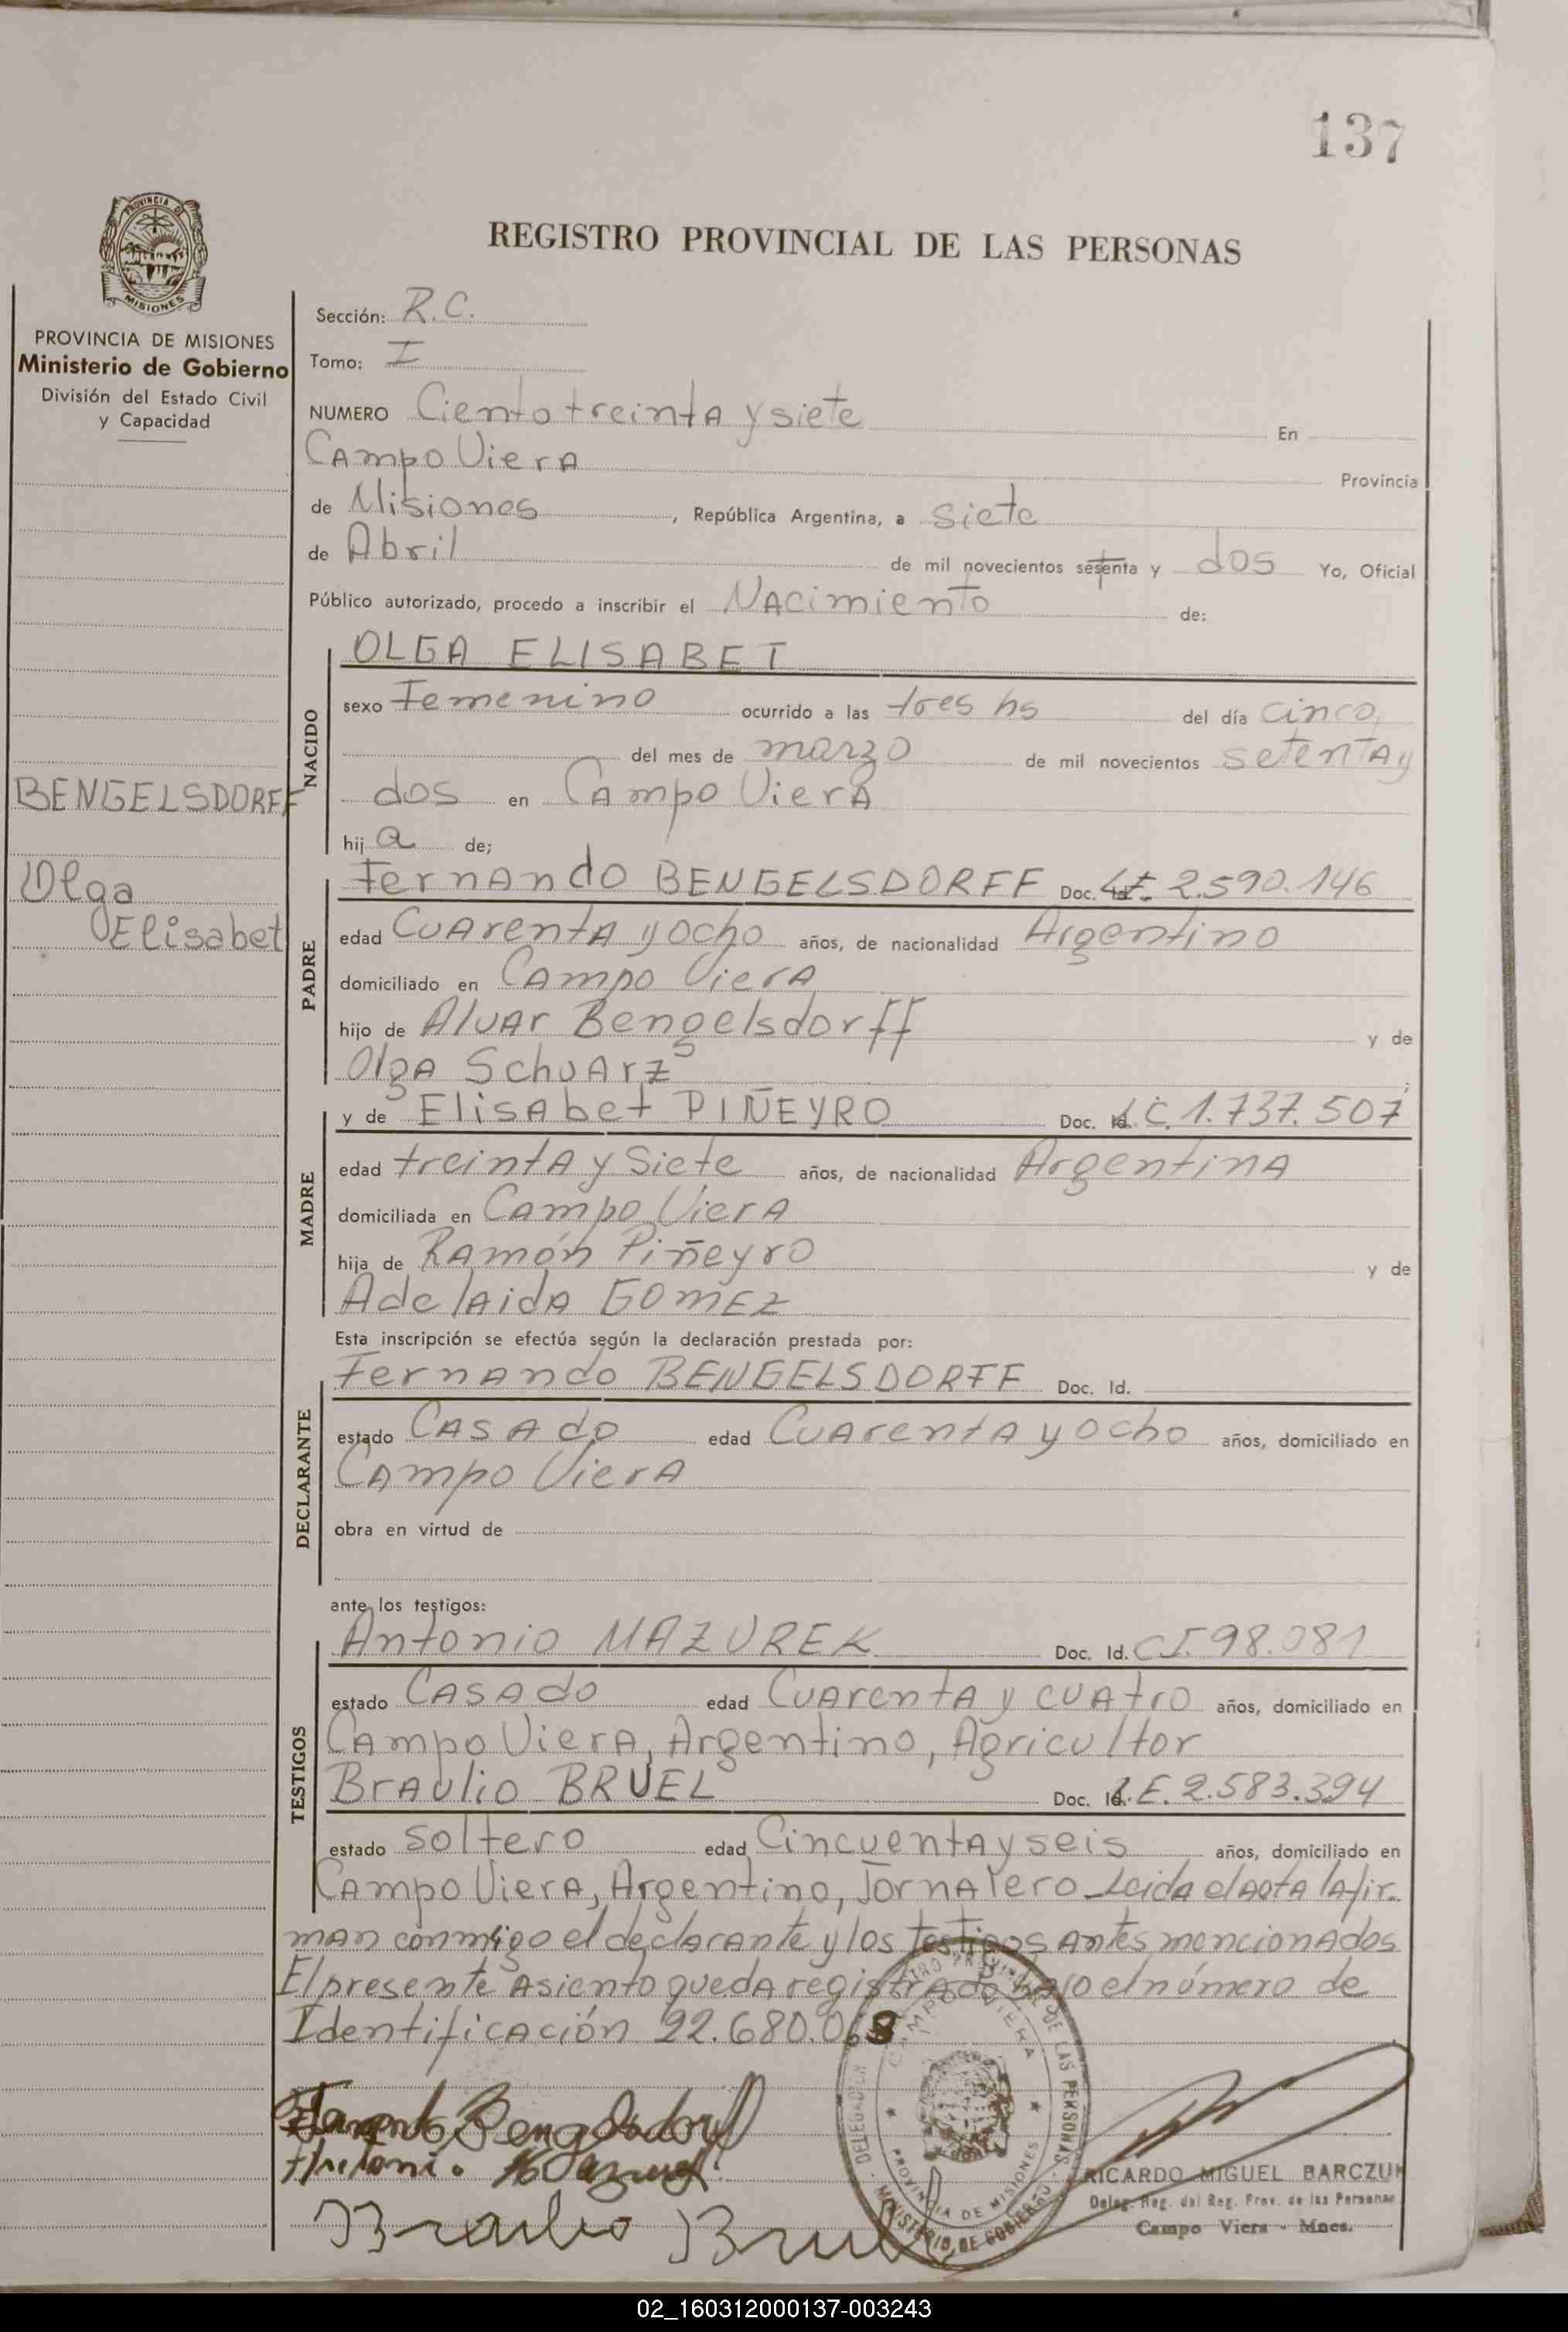 137
PROVINCIA DE
MISIONES
REGISTRO PROVINCIAL DE LAS PERSONAS
PROVINCIA DE MISIONES
Ministerio de Gobierno
División del Estado Civil
y Capacidad
BENGELSDORFF
Olga
Elisabet
Sección: R.C.
Tomo: I
NUMERO Ciento treinta y siete En
Campo Viera Provincia
de Misiones, República Argentina, a siete
de Abril de mil novecientos setenta y dos Yo, Oficial
Público autorizado, procedo a inscribir el Nacimiento de:
NACIDO
OLGA ELISABET
sexo Femenino ocurrido a las tres hs del día cinco,
del mes de marzo de mil novecientos setenta y
dos en Campo Viera
hija de;
PADRE
Fernando BENGELSDORFF Doc. L.E. 2.590.146
edad Cuarenta y ocho años, de nacionalidad Argentino
domiciliado en Campo Viera
hijo de Alvar Bengelsdorff y de
Olga Schuarz ;
MADRE
y de Elisabet PIÑEYRO Doc. L.C. 1.737.507
edad treinta y siete años, de nacionalidad Argentina
domiciliada en Campo Viera
hija de Ramón Piñeyro y de
Adelaida GOMEZ
Esta inscripción se efectúa según la declaración prestada por:
DECLARANTE
Fernando BENGELSDORFF Doc. Id.
estado Casado edad Cuarenta y ocho años, domiciliado en
Campo Viera
obra en virtud de
ante los testigos:
TESTIGOS
Antonio MAZUREK Doc. Id. C.I. 98.081
estado Casado edad Cuarenta y cuatro años, domiciliado en
Campo Viera, Argentino, Agricultor
Braulio BRUEL Doc. Id. L.E. 2.583.394
estado soltero edad Cincuenta y seis años, domiciliado en
Campo Viera, Argentino, Jornalero Leida el acta la fir-
man conmigo el declarante y los testigos antes mencionados
El presente asiento queda registrado bajo el número de
Identificación 22.680.068
Fernando Bengelsdorff
Antonio Mazurek
Braulio Bruel
REGISTRO PROVINCIAL DE LAS PERSONAS
DELEGACION
CAMPO VIERA
PROVINCIA DE MISIONES
MINISTERIO DE GOBIERNO
RICARDO MIGUEL BARCZUK
Deleg. Reg. del Reg. Prov. de las Personas
Campo Viera - Mnes.
02_160312000137-003243